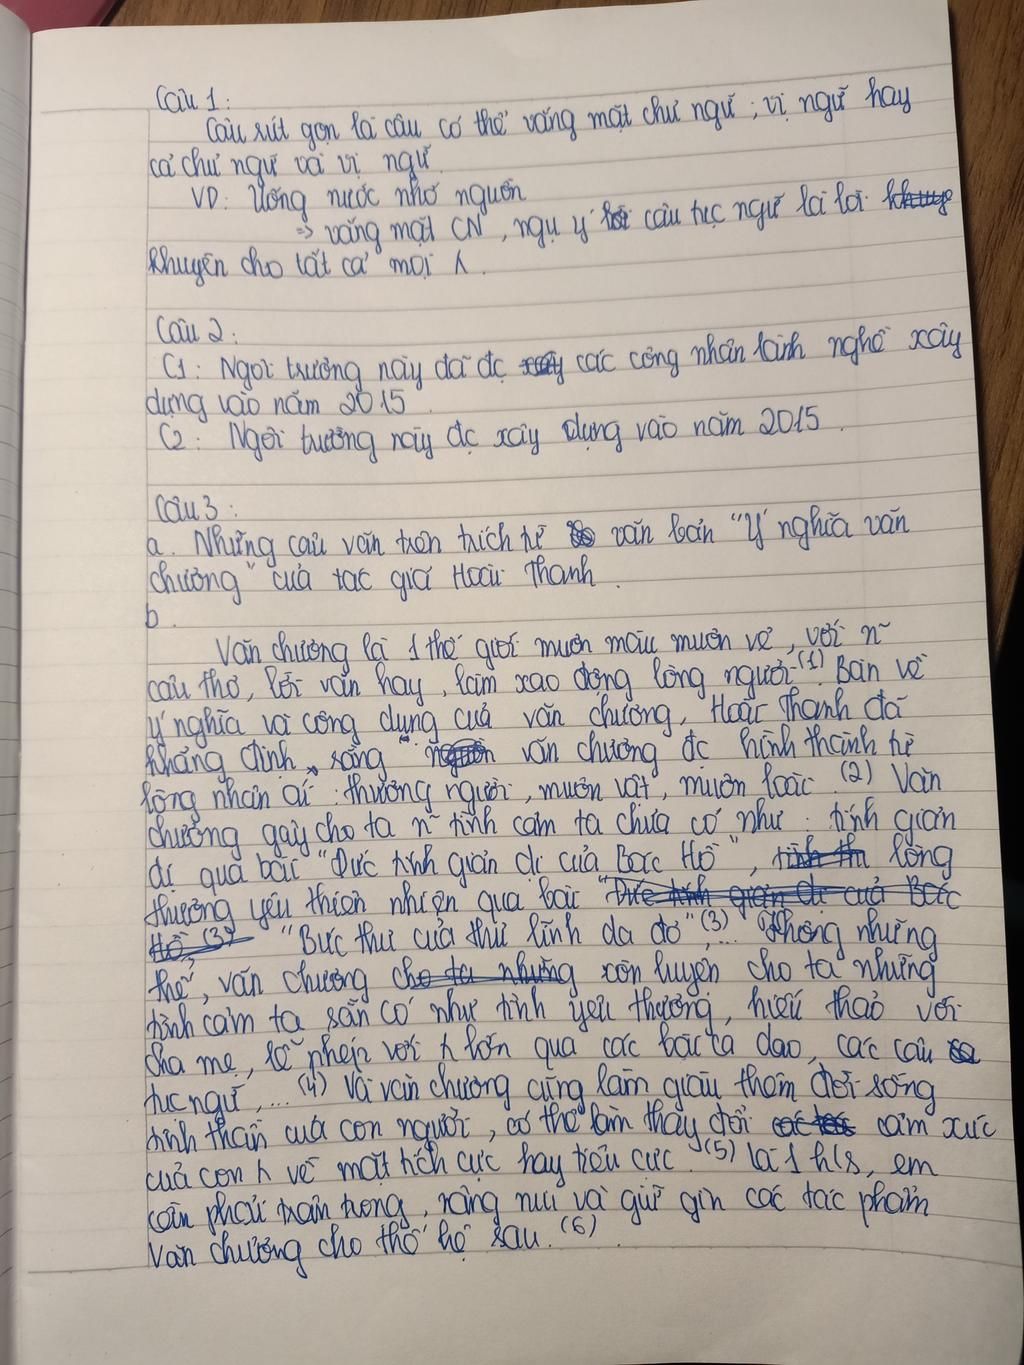 Câu 1:
Câu rút gọn là câu có thể vắng mặt chủ ngữ; vị ngữ hay
cả chủ ngữ và vị ngữ.
VD: Uống nước nhớ nguồn
=> vắng mặt CN, ngụ ý câu tục ngữ là lời
khuyên cho tất cả mọi
Câu 2:
C1: Ngôi trường này đã đc các công nhân lành nghề xây
dựng vào năm 2015.
C2: Ngôi trường này đc xây dựng vào năm 2015.
Câu 3:
a. Những câu văn trên trích từ văn bản "Ý nghĩa văn
chương" của tác giả Hoài Thanh.
b.
Văn chương là 1 thế giới muôn màu muôn vẻ, với n~
câu thơ, lời văn hay, làm xao động lòng người.(1) Bàn về
ý nghĩa và công dụng của văn chương, Hoài Thanh đã
khẳng định, rằng văn chương đc hình thành từ
lòng nhân ái: thương người, muôn vật, muôn loài. (2) Văn
chương gây cho ta n~ tình cảm ta chưa có như: tính giản
dị qua bài "Đức tính giản dị của Bác Hồ", lòng
thương yêu thiên nhiên qua bài
"Bức thư của thủ lĩnh da đỏ",...(3) Không những
thế, văn chương còn luyện cho ta những
tình cảm ta sẵn có như tình yêu thương, hiếu thảo với
cha mẹ, lễ phép với lớn qua các bài ca dao, các câu
tục ngữ,... (4) Và văn chương cũng làm giàu thêm đời sống
tinh thần của con người, có thể làm thay đổi cảm xúc
của con về mặt tích cực hay tiêu cực.(5) Là 1 h/s, em
cần phải trân trọng, nâng niu và giữ gìn các tác phẩm
văn chương cho thế hệ sau.(6)